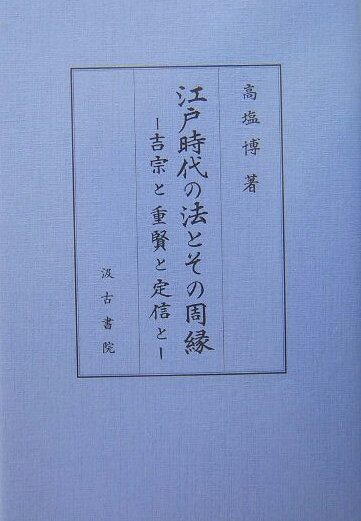 高塩博 著
江戸時代の法とその周縁
―吉宗と重賢と定信と―
汲古書院